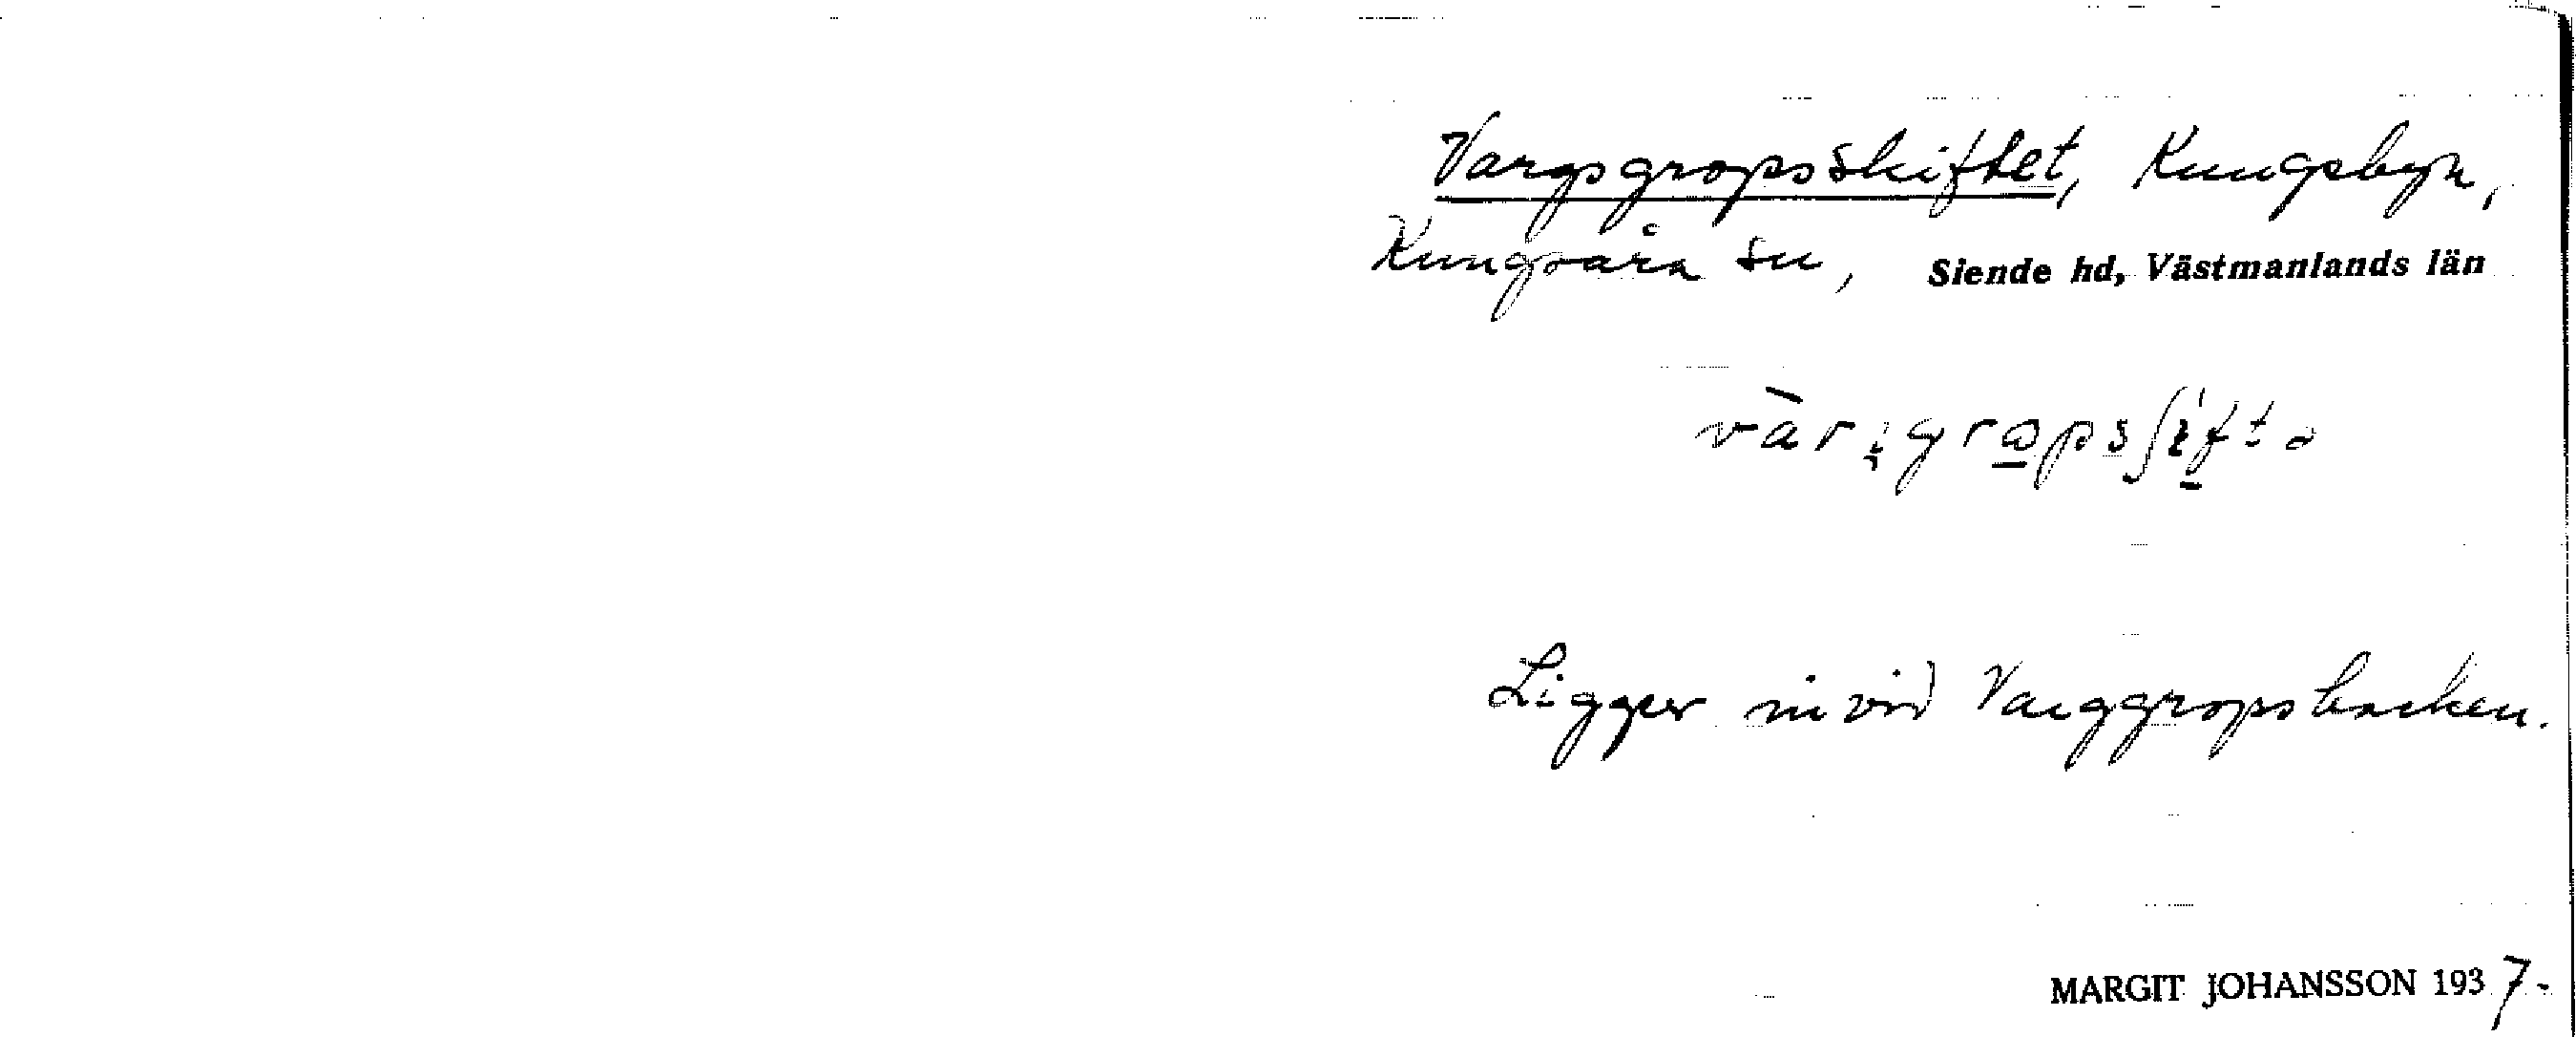 Vargsgropsskiftet, Kungsbyn,
Kungsåra sn, Siende hd, Västmanlands län
Ligger in vid Varggropsbacken.
MARGIT JOHANSSON 1937.